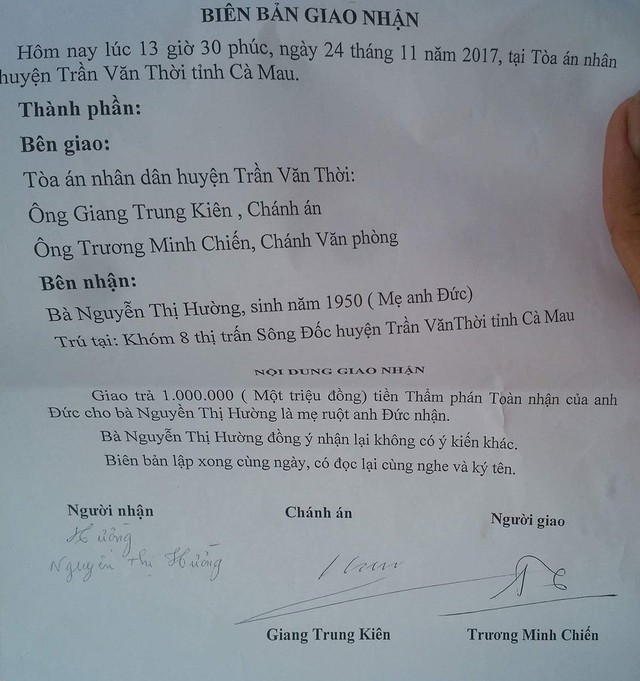 BIÊN BẢN GIAO NHẬN
Hôm nay lúc 13 giờ 30 phúc, ngày 24 tháng 11 năm 2017, tại Tòa án nhân
huyện Trần Văn Thời tỉnh Cà Mau.
Thành phần:
Bên giao:
Tòa án nhân dân huyện Trần Văn Thời:
Ông Giang Trung Kiên , Chánh án
Ông Trương Minh Chiến, Chánh Văn phòng
Bên nhận:
Bà Nguyễn Thị Hường, sinh năm 1950 ( Mẹ anh Đức)
Trú tại: Khóm 8 thị trấn Sông Đốc huyện Trần VănThời tỉnh Cà Mau
NỘI DUNG GIAO NHẬN
Giao trả 1.000.000 ( Một triệu đồng) tiền Thẩm phán Toàn nhận của anh
Đức cho bà Nguyễn Thị Hường là mẹ ruột anh Đức nhận.
Bà Nguyễn Thị Hường đồng ý nhận lại không có ý kiến khác.
Biên bản lập xong cùng ngày, có đọc lại cùng nghe và ký tên.
Người nhận Chánh án Người giao
Hường
Nguyễn Thị Hường
Giang Trung Kiên Trương Minh Chiến